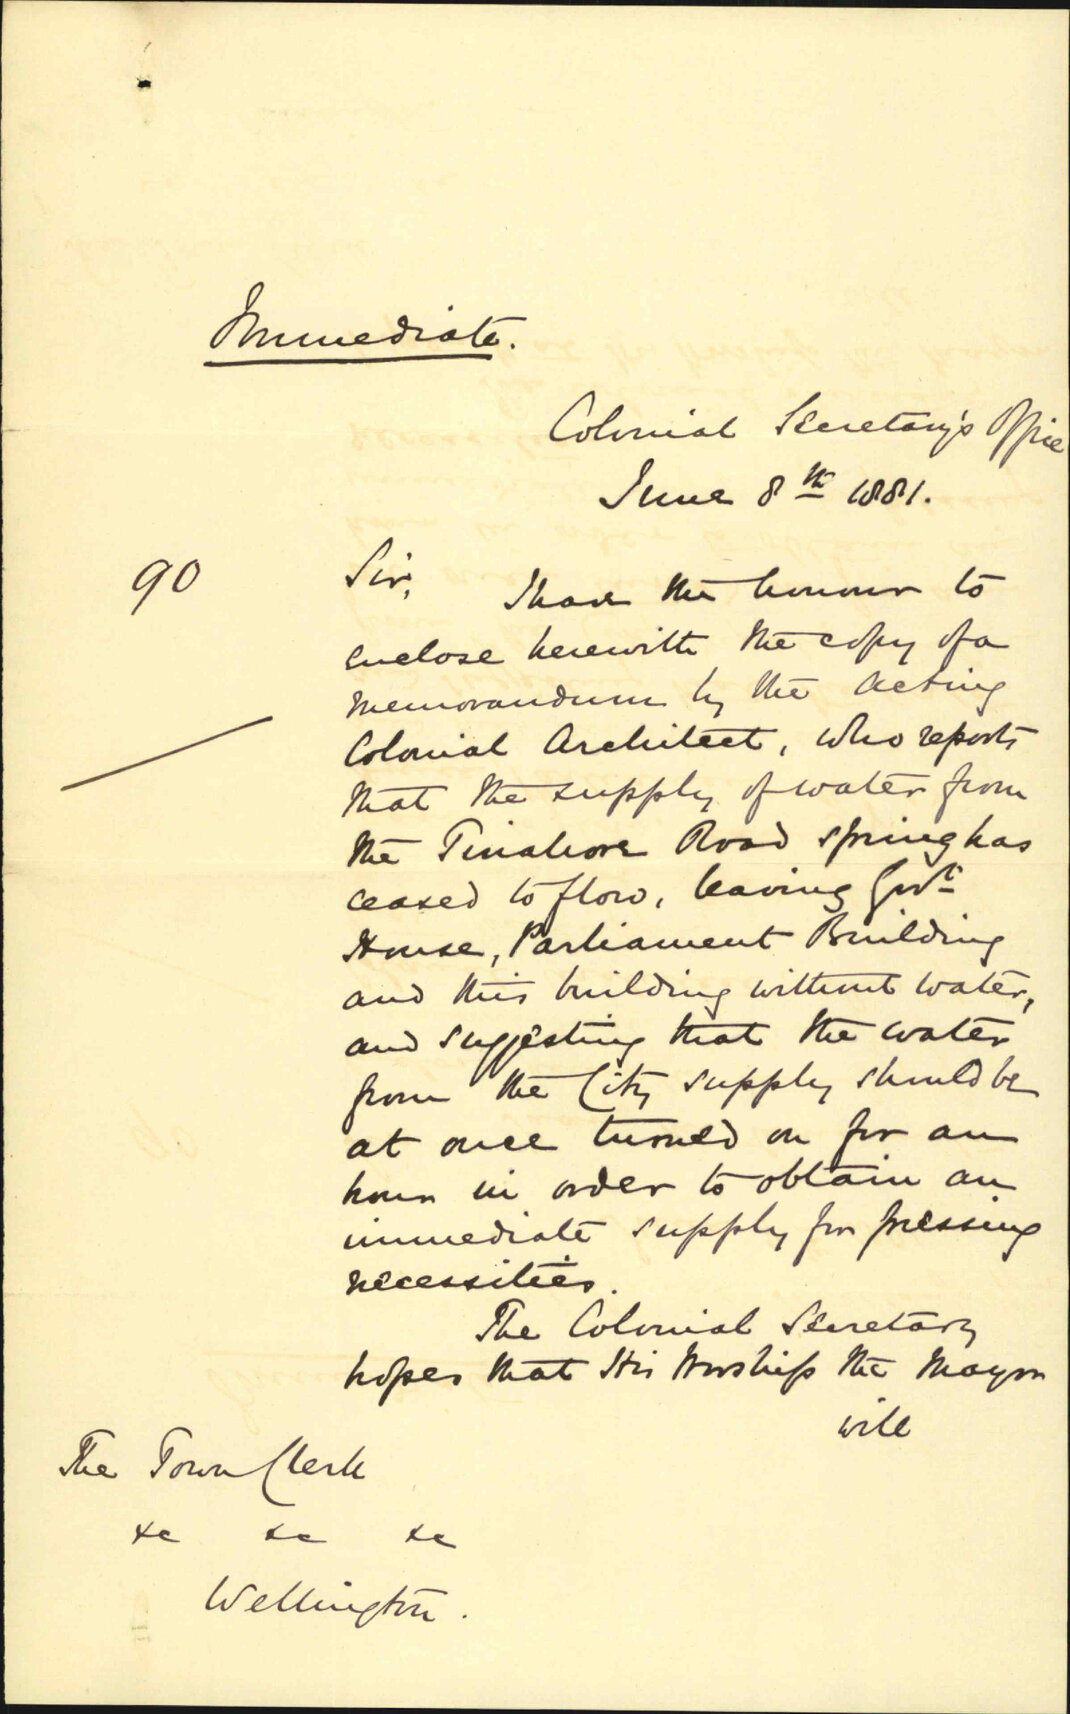 Immediate.
Colonial Secretary's Office
June 8th 1881.
90
Sir,
I have the honour to
enclose herewith the copy of a
memorandum by the Acting
Colonial Architect, who reports
that the supply of water from
the Tinakore Road spring has
ceased to flow, leaving Govt
House, Parliament Building
and this building without water,
and suggesting that the water
from the City supply should be
at once turned on for an
hour in order to obtain an
immediate supply for pressing
necessities.
The Colonial Secretary
hopes that His Worship the Mayor
will
The Town Clerk
&c &c &c
Wellington.